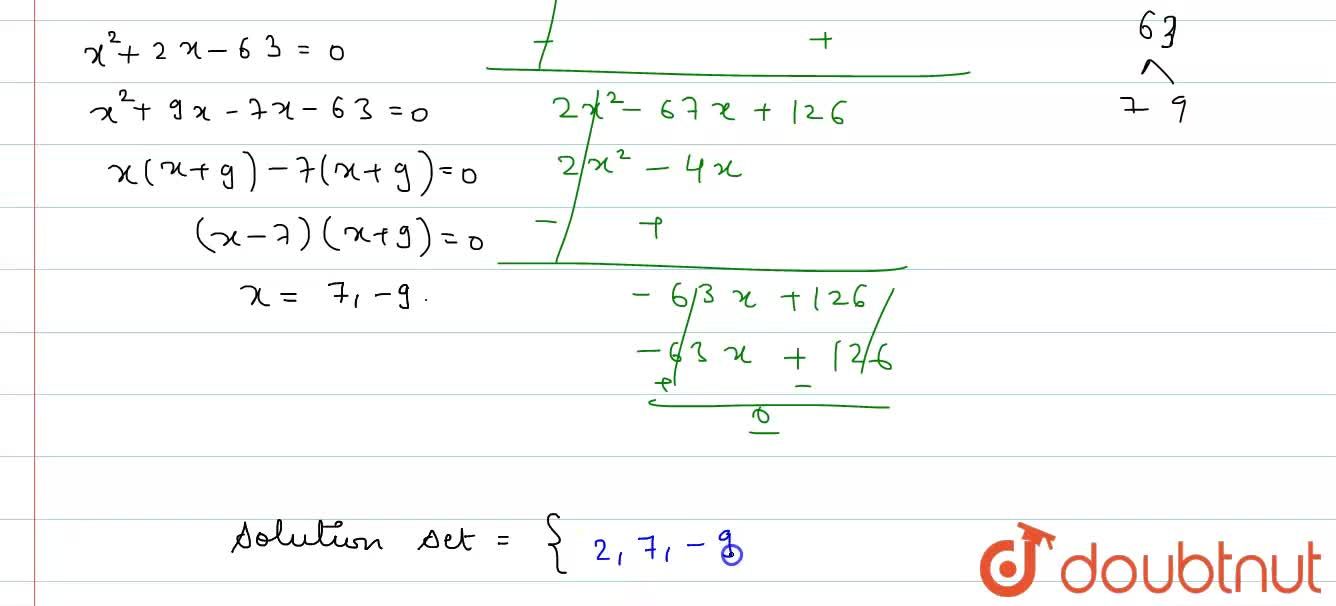 x² + 2x - 63 = 0
x² + 9x - 7x - 63 = 0
x(x+9) - 7(x+9) = 0
(x-7)(x+9) = 0
x = 7, -9.
- +
2x² - 67x + 126
2x² - 4x
- +
- 63x + 126
- 63x + 126
+ -
0
63
7 9
Solution set = { 2, 7, -9
doubtnut